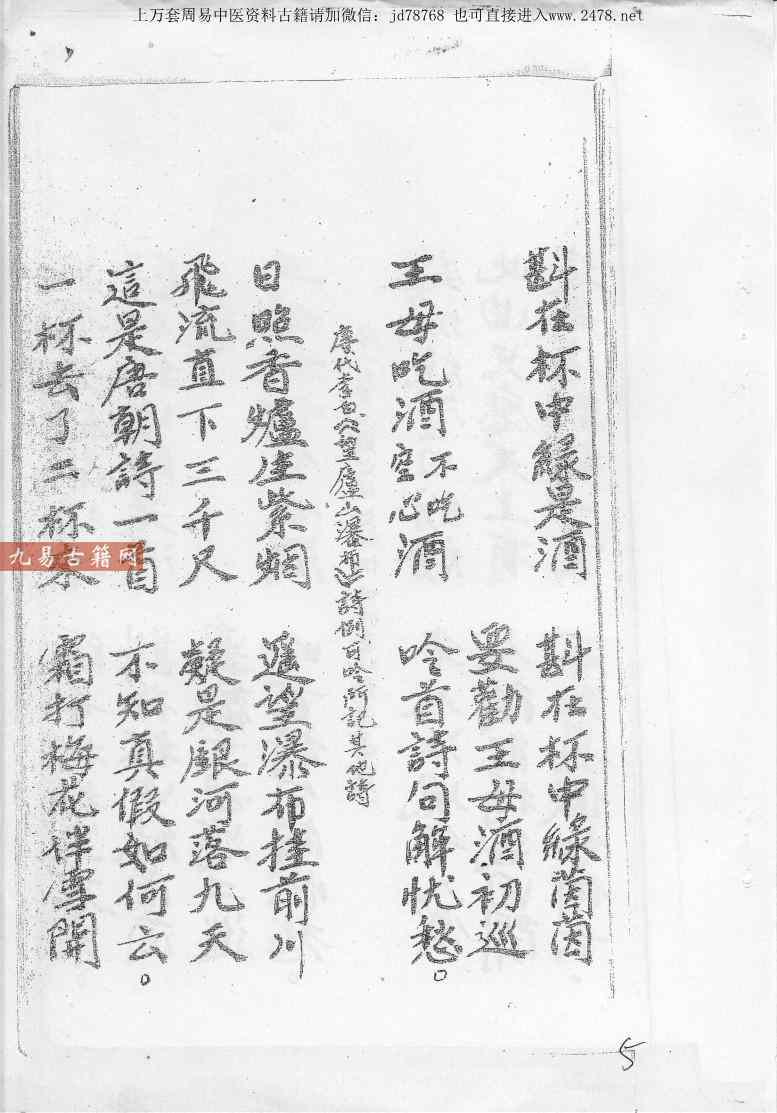 上万套周易中医资料古籍请加微信：jd78768 也可直接进入www.2478.net
斟在杯中綠是酒 斟在杯中綠茵茵
要勸王母酒初巡
王母吃酒不吃空心酒 吟首詩句解忧愁。
唐代李白《望廬山瀑布》詩例可吟所記其他詩
日照香爐生紫烟 遥望瀑布挂前川
飛流直下三千尺 疑是銀河落九天
這是唐朝詩一首 不知真假如何云。
一杯去了二杯来 霜打梅花伴雪開
九易古籍网
5